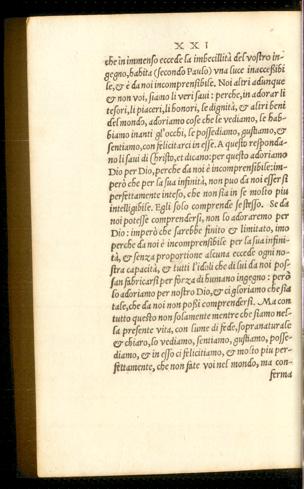 X X I
che in immenso eccede la imbecillità del vostro in-
gegno, habita (secondo Paulo) vna luce inaccessibi
le, & è da noi incomprensibile. Noi altri adunque
& non voi, siamo li veri saui: perche, in adorar li
tesori, li piaceri, li honori, le dignità, & altri beni
del mondo, adoriamo cose che le vediamo, le hab-
biamo inanti gl'occhi, le possediamo, gustiamo, &
sentiamo, con felicitarci in esse. A questo responda-
no li saui di Christo, et dicano: per questo adoriamo
Dio per Dio, perche da noi è incomprensibile: im-
però che per la sua infinità, non puo da noi esser sì
perfettamente inteso, che non sia in se molto piu
intelligibile. Egli solo comprende se stesso. Se da
noi potesse comprendersi, non lo adoraremo per
Dio: imperò che sarebbe finito & limitato, imo
perche da noi è incomprensibile per la sua infini-
tà, & senza proportione alcuna eccede ogni no-
stra capacità, & tutti l'idoli che di lui da noi pos-
san fabricarsi per forza di humano ingegno: però
lo adoriamo per nostro Dio, & ci gloriamo che sia
tale, che da noi non possi comprendersi. Ma con
tutto questo non solamente mentre che siamo nel-
la presente vita, con lume di fede, sopranaturale
& chiaro, lo vediamo, sentiamo, gustiamo, posse-
diamo, & in esso ci felicitiamo, & molto piu per-
fettamente, che non fate voi nel mondo, ma con-
ferma